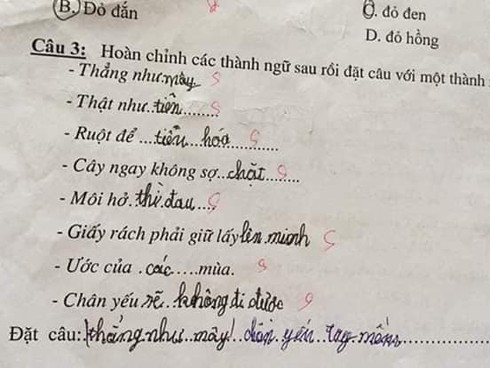 B. Đỏ đắn
C. đỏ đen
D. đỏ hồng
Câu 3: Hoàn chỉnh các thành ngữ sau rồi đặt câu với một thành
- Thẳng như mày
- Thật như..tiền........
- Ruột để ...tiêu..hóa..........
- Cây ngay không sợ..chặt........
- Môi hở.thì.đau....
- Giấy rách phải giữ lấy lên mình
- Ước của .các.....mùa.
- Chân yếu sẽ..không đi được
Đặt câu: thẳng như..mày!..chân..yếu..tay.mềm..................